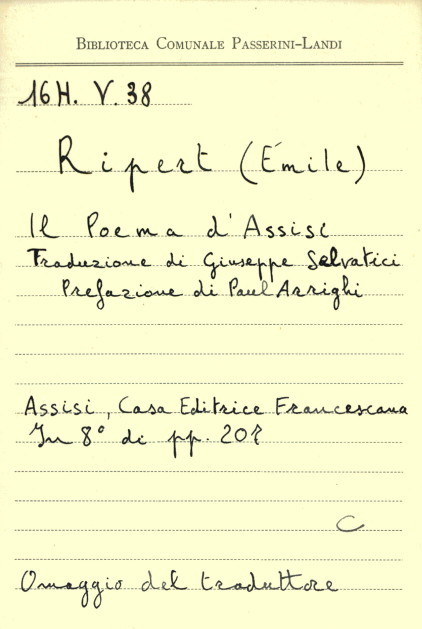 BIBLIOTECA COMUNALE PASSERINI-LANDI
16H. V. 38
Ripert (Émile)
Il Poema d'Assisi
Traduzione di Giuseppe Selvatici
Prefazione di Paul Arrighi
Assisi, Casa Editrice Francescana
In 8° di pp. 207
C
Omaggio del traduttore